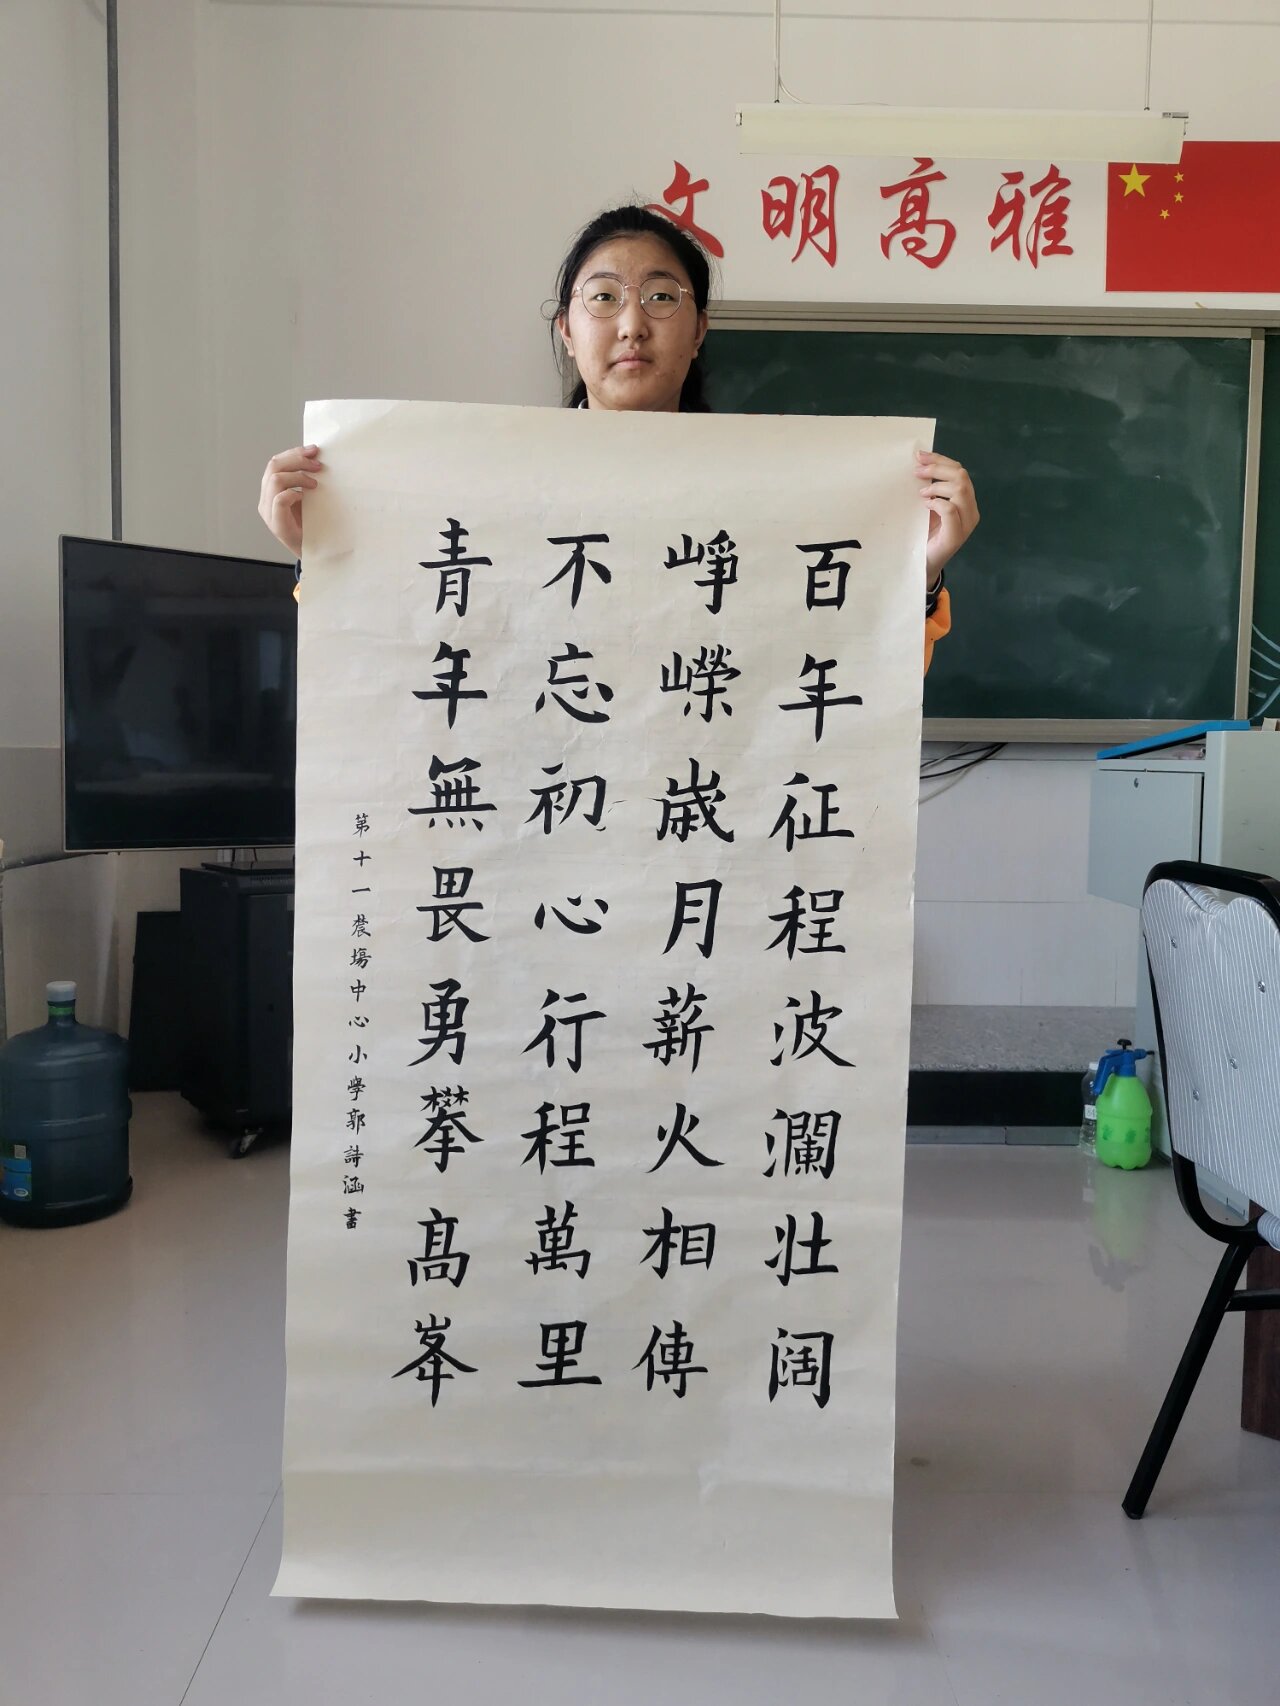 文明高雅
百年征程波瀾壮阔
崢嶸歲月薪火相傳
不忘初心行程萬里
青年無畏勇攀高峯
第十一農場中心小學郭詩涵書